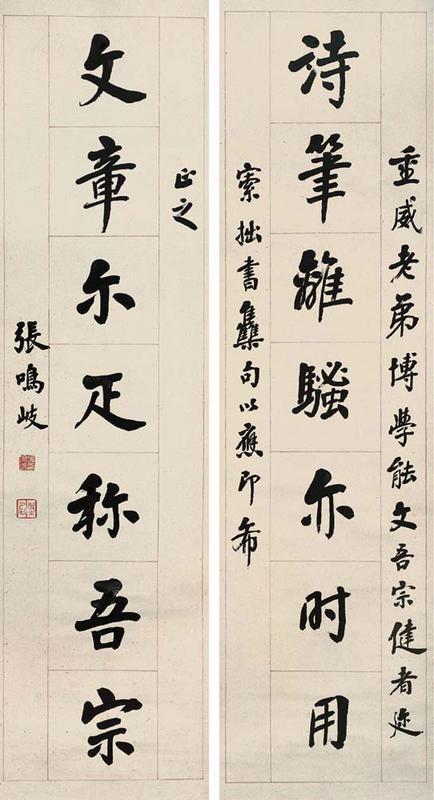 重威老弟博學能文吾宗健者迩
詩筆離騷亦时用
索拙書雧句以應即希
正之
文章尔疋称吾宗
張鳴岐